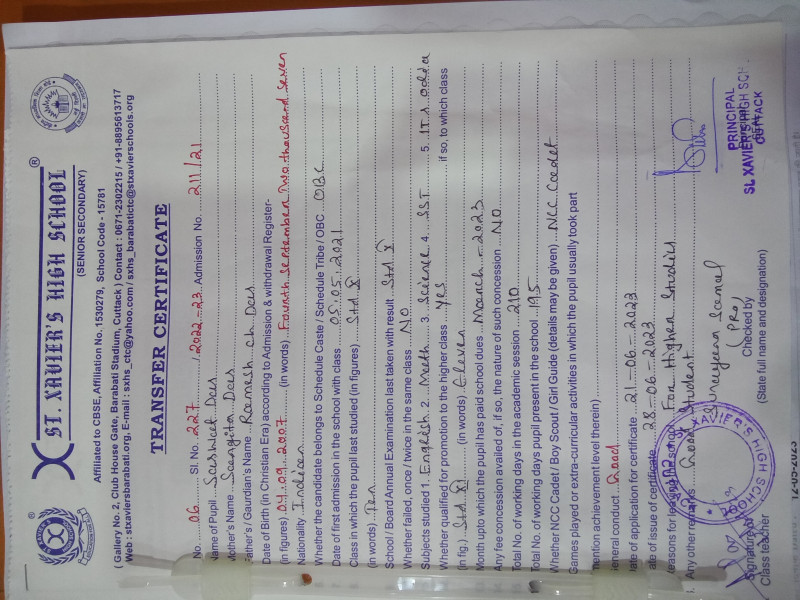 ST. XAVIER'S HIGH SCHOOL ®
(SENIOR SECONDARY)
Affiliated to CBSE, Affiliation No. 1530279, School Code - 15781
( Gallery No. 2, Club House Gate, Barabati Stadium, Cuttack ) Contact : 0671-2302215 / +91-8895613717
Web : stxaviersbarabati.org, E-mail : sxhs_ctc@yahoo.com / sxhs_barabatictc@stxavierschools.org
TRANSFER CERTIFICATE
No. 06 Sl. No. 227 / 2022-23 Admission No. 211/21
Name of Pupil Sashwat Das
Mother's Name Sangita Das
Father's / Gaurdian's Name Ramesh ch. Das
Date of Birth (in Christian Era) according to Admission & withdrawal Register-
(in figures) 04.09.2007 (in words) Fourth September Two thousand Seven
Nationality Indian
Whether the candidate belongs to Schedule Caste / Schedule Tribe / OBC OBC
Date of first admission in the school with class 05.05.2021
Class in which the pupil last studied (in figures) Std X
(in words) Ten
School / Board Annual Examination last taken with result Std X
Whether failed, once / twice in the same class NO
Subjects studied 1. English 2. Math 3. Science 4. SST 5. IT 1. Odia
Whether qualified for promotion to the higher class Yes if so, to which class
(in fig.) Std XI (in words) Eleven
Month upto which the pupil has paid school dues March - 2023
Any fee concession availed of, if so, the nature of such concession NO
Total No. of working days in the academic session 210
Total No. of working days pupil present in the school 195
Whether NCC Cadet / Boy Scout / Girl Guide (details may be given) NCC Cadet
Games played or extra-curricular activities in which the pupil usually took part
mention achievement level therein)
General conduct Good
Date of application for certificate 21-06-2023
Date of issue of certificate 28-06-2023
Reasons for leaving school For Higher Studies
Any other remarks Good Student
PRINCIPAL
ST. XAVIER'S HIGH SCH.
CUTTACK
Samal
(PRO)
Signature of
Class teacher
Checked by
(State full name and designation)
ST. XAVIER'S HIGH SCHOOL
12-05-2023